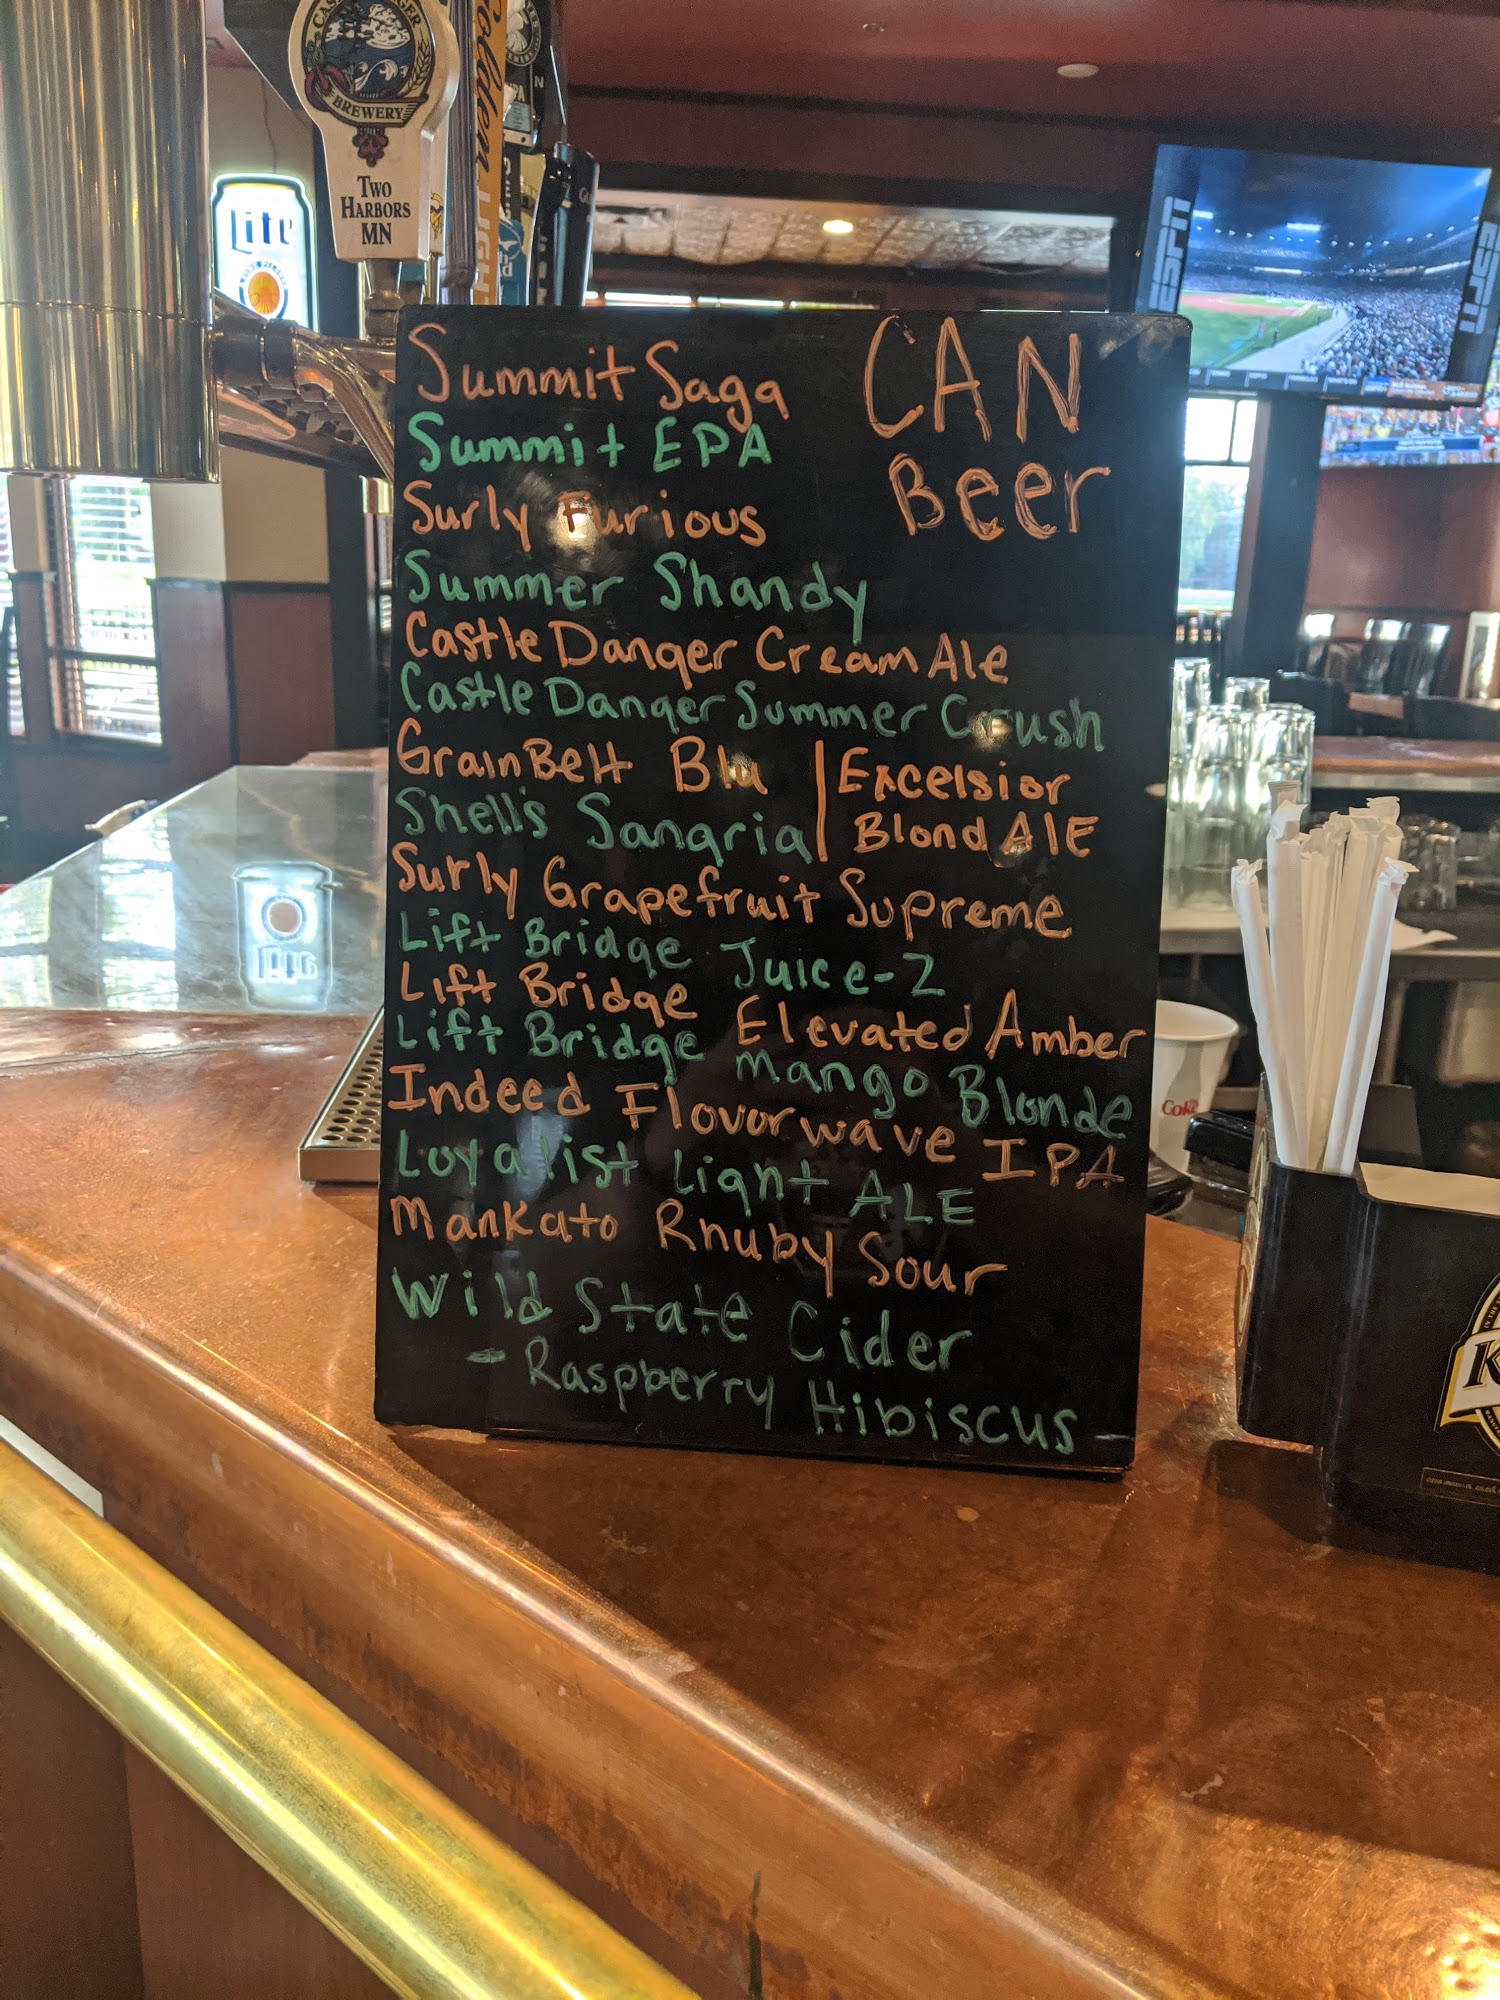 BREWERY
TWO
HARBORS
MN
Golden LIGHT
Lite
ESPN
ESPN
CAN
Beer
Summit Saga
Summit EPA
Surly Furious
Summer Shandy
Castle Danger Cream Ale
Castle Danger Summer Crush
GrainBelt Blu | Excelsior
Shell's Sangria | Blond ALE
Surly Grapefruit Supreme
Lift Bridge Juice-Z
Lift Bridge Elevated Amber
Lift Bridge Mango Blonde
Indeed Flavorwave IPA
Loyalist Light ALE
Mankato Rhuby Sour
Wild State Cider
- Raspberry Hibiscus
Coke